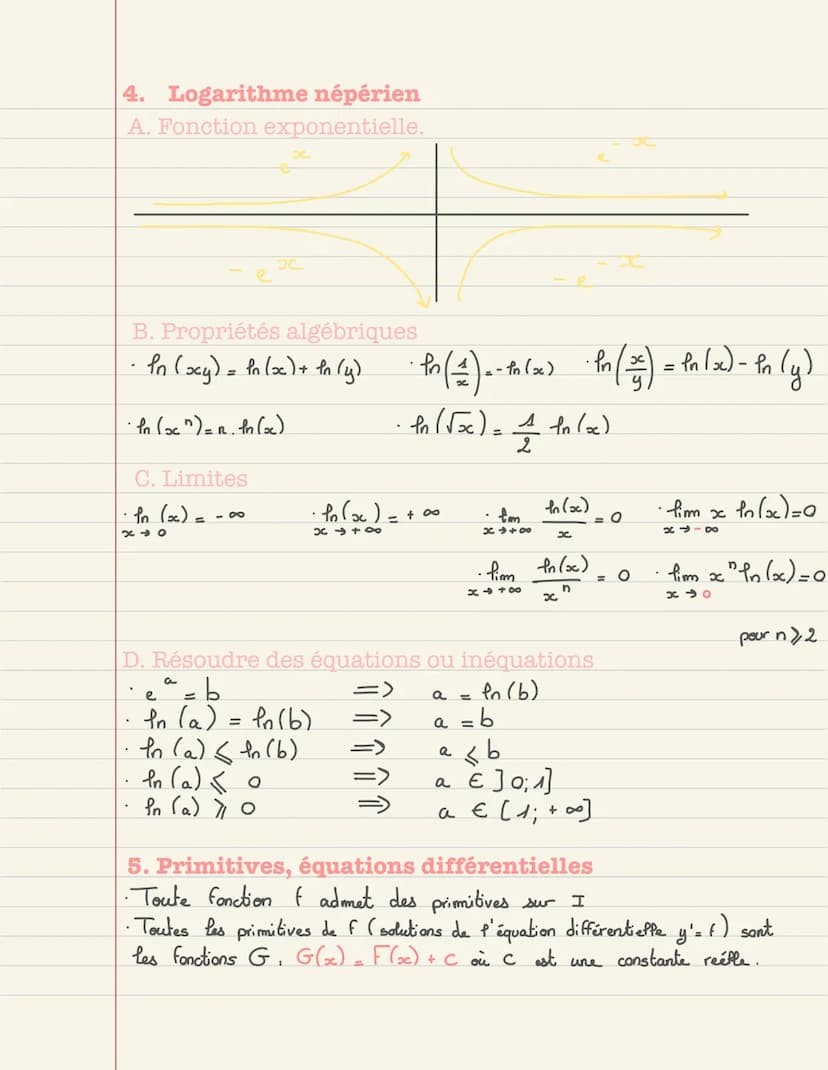 4. Logarithme népérien
A. Fonction exponentielle.
eˣ e⁻ˣ
-eˣ -e⁻ˣ
B. Propriétés algébriques
· ln(xy) = ln(x) + ln(y) · ln(1/x) = -ln(x) · ln(x/y) = ln(x) - ln(y)
· ln(xⁿ) = n.ln(x) · ln(√x) = 1/2 ln(x)
C. Limites
· ln(x) = -∞ · ln(x) = +∞ · lim ln(x)/x = 0 · lim x ln(x)=0
x→0 x→+∞ x→+∞ x→-∞
· lim ln(x)/xⁿ = 0 · lim xⁿ ln(x)=0
x→+∞ x→0
pour n⩾2
D. Résoudre des équations ou inéquations
· eᵃ = b => a = ln(b)
· ln(a) = ln(b) => a = b
· ln(a) ⩽ ln(b) => a ⩽ b
· ln(a) ⩽ 0 => a ∈ ]0;1]
· ln(a) ⩾ 0 => a ∈ [1;+∞]
5. Primitives, équations différentielles
· Toute fonction f admet des primitives sur I
· Toutes les primitives de f (solutions de l'équation différentielle y'=f) sont
les fonctions G, G(x) = F(x) + C où C est une constante réelle.